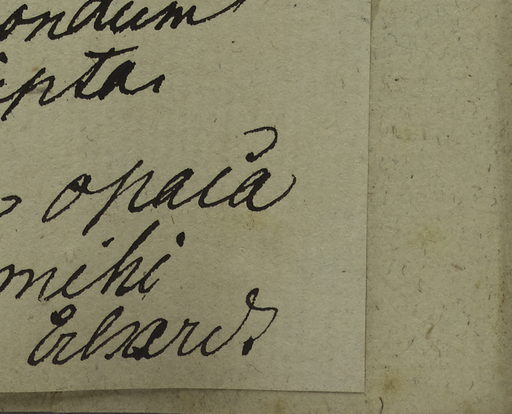 ondum
ipta.
opaca
mihi
Erhard.